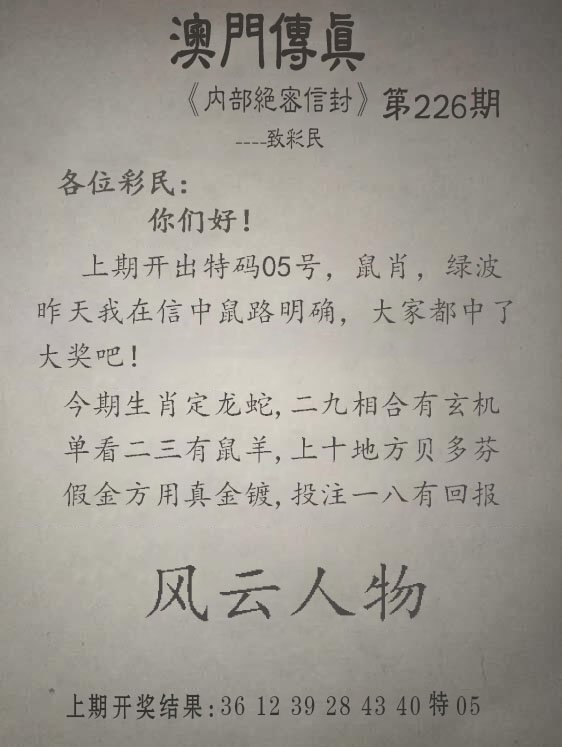 澳門傳眞
《内部絕密信封》第226期
----致彩民
各位彩民:
你们好!
上期开出特码05号，鼠肖，绿波
昨天我在信中鼠路明确，大家都中了
大奖吧!
今期生肖定龙蛇,二九相合有玄机
单看二三有鼠羊,上十地方贝多芬
假金方用真金镀,投注一八有回报
风云人物
上期开奖结果:36 12 39 28 43 40 特 05